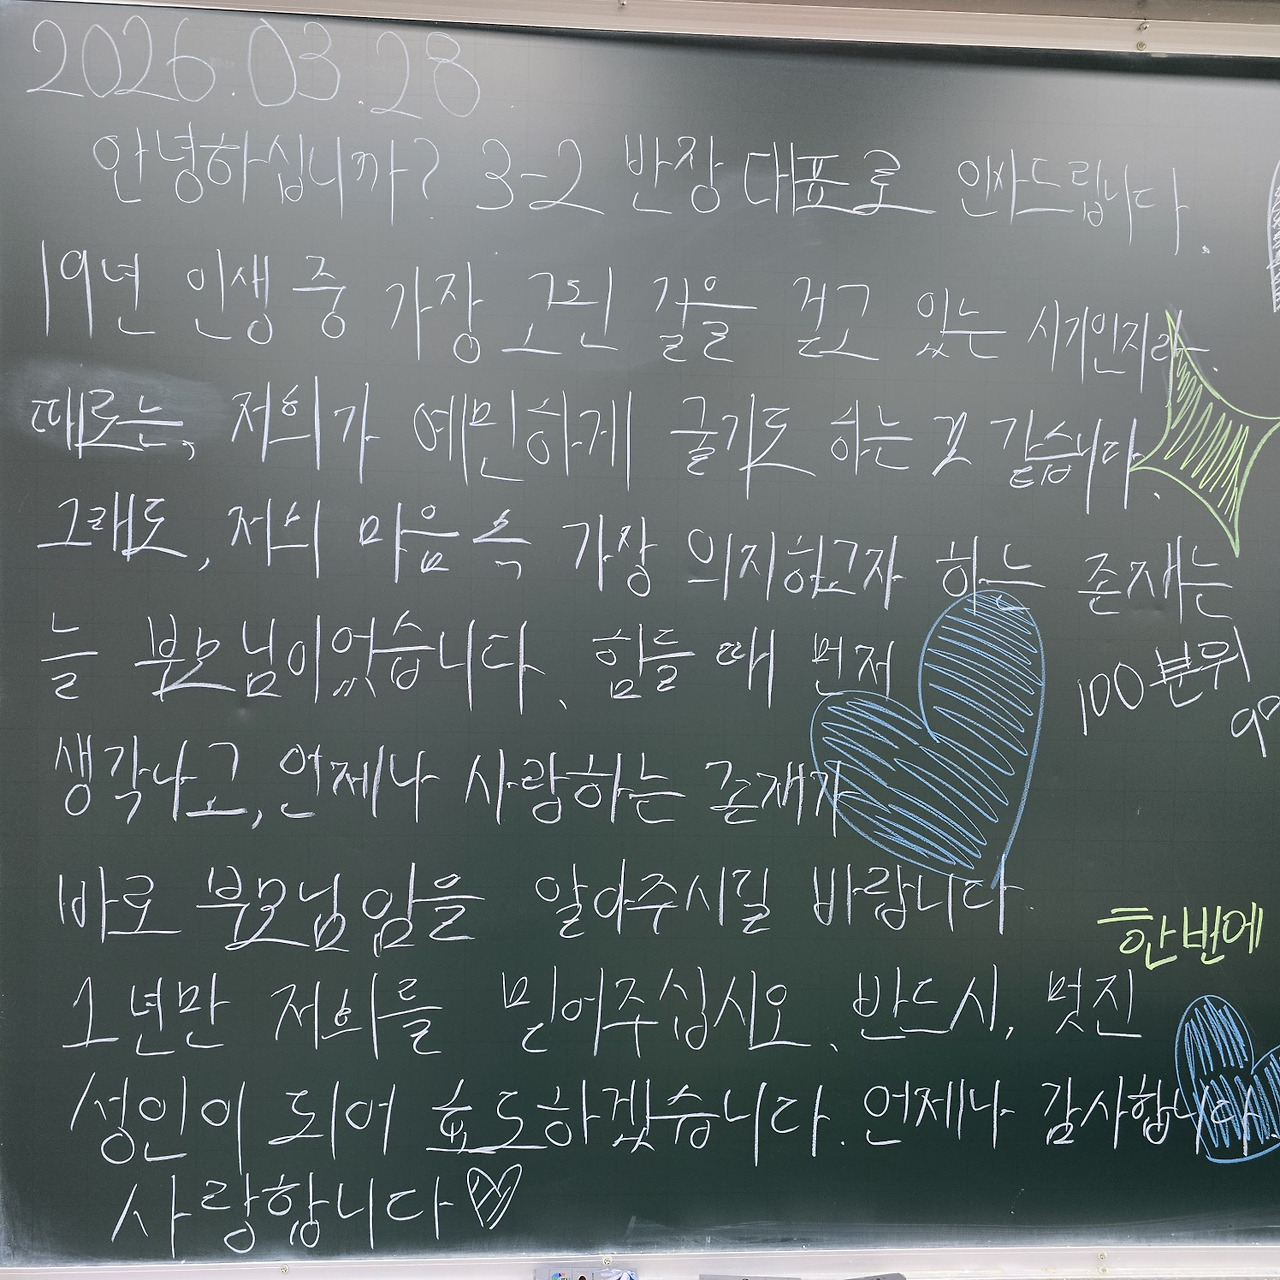 2026.03.28.
안녕하십니까? 3-2 반장 대표로 인사드립니다.
19년 인생 중 가장 고된 길을 걷고 있는 시기인지라.
때로는, 저희가 예민하게 굴기도 하는 것 같습니다.
그래도, 저희 마음 속 가장 의지하고자 하는 존재는
늘 부모님이었습니다. 힘들 때 먼저
생각나고, 언제나 사랑하는 존재가
바로 부모님임을 알아주시길 바랍니다.
1년만 저희를 믿어주십시오. 반드시, 멋진
성인이 되어 효도하겠습니다. 언제나 감사합니다.
사랑합니다♡
100분위
한번에